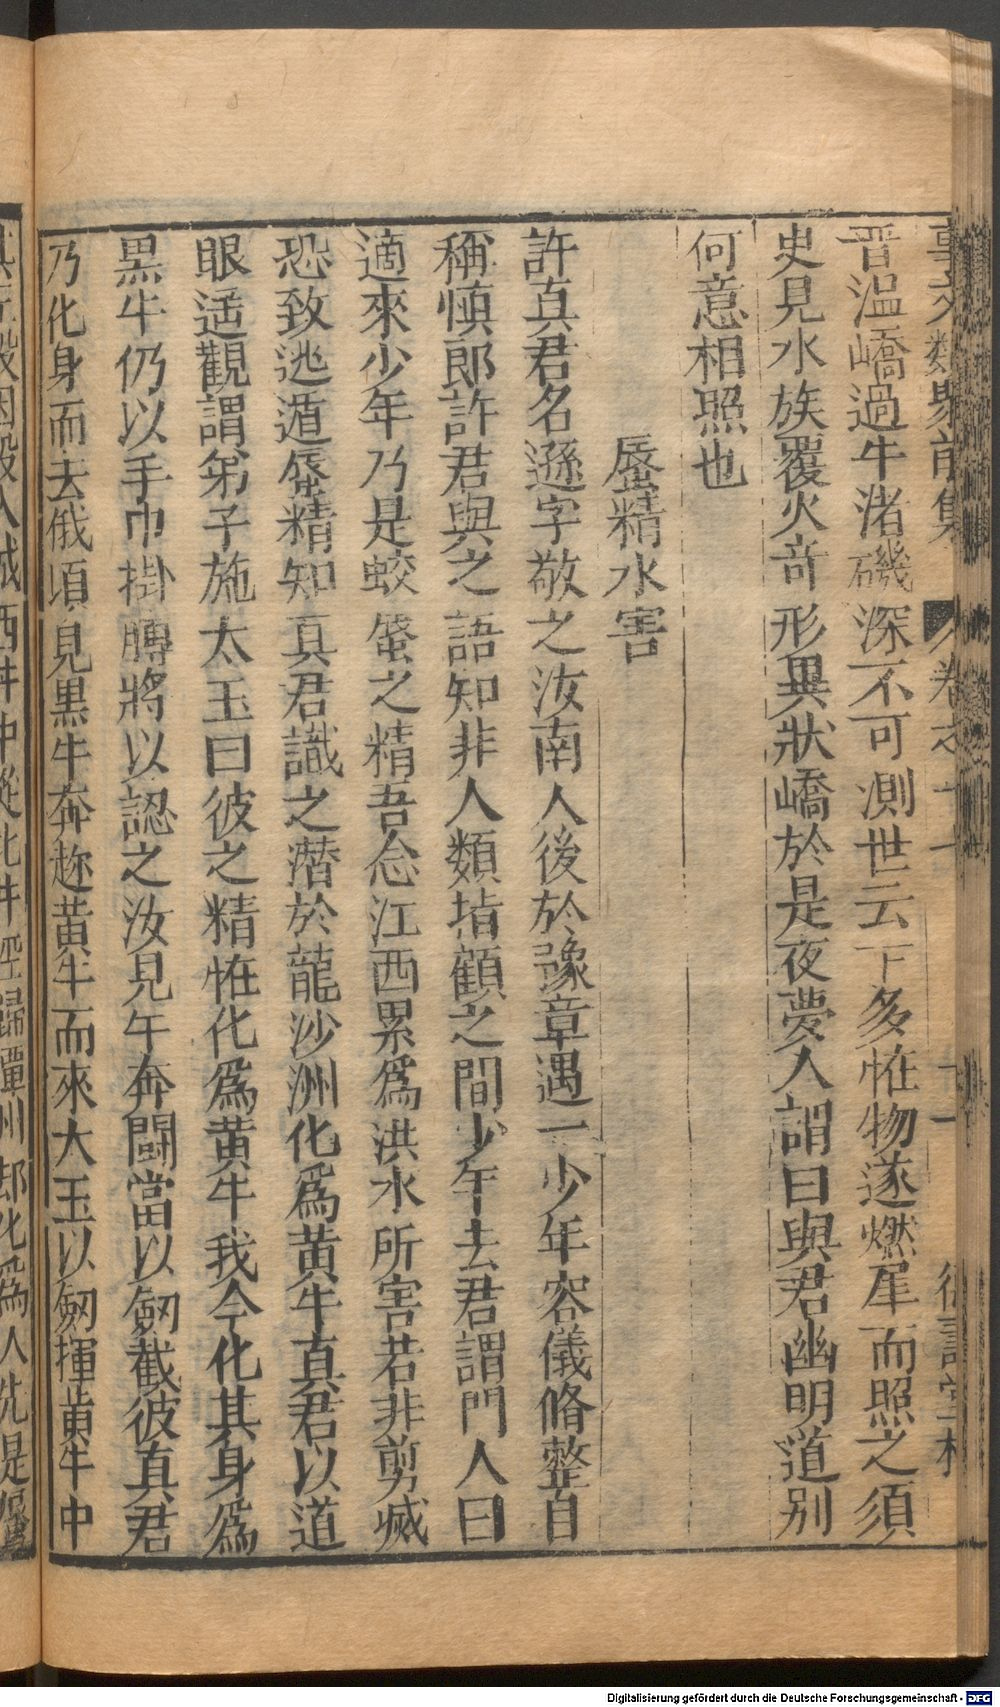 晋温嶠過牛渚磯深不可測世云下多恠物遂燃犀而照之須
史見水族覆火竒形異狀嶠於是夜夢人謂曰與君幽明道别
何意相照也
蜃精水害
許真君名遜字敬之汝南人後於豫章遇一少年容儀脩整自
稱慎郎許君與之語知非人類指顧之間少年去君謂門人曰
適來少年乃是蛟蜃之精吾念江西累爲洪水所害若非剪滅
恐致逃遁蜃精知真君識之潛於龍沙洲化爲黄牛真君以道
眼遥觀謂弟子施太玉曰彼之精恠化爲黄牛我今化其身爲
黒牛仍以手巾掛膊將以認之汝見牛奔鬪當以劒截彼真君
乃化身而去俄頃見黒牛奔趂黄牛而來大玉以劒揮黄牛中
Digitalisierung gefördert durch die Deutsche Forschungsgemeinschaft - DFG